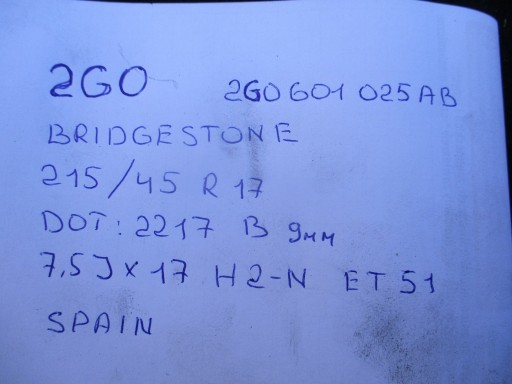 2GO 2G0601025AB
BRIDGESTONE
215/45 R 17
DOT: 2217 B 9мм
7,5J X 17 H2-N ET 51
SPAIN